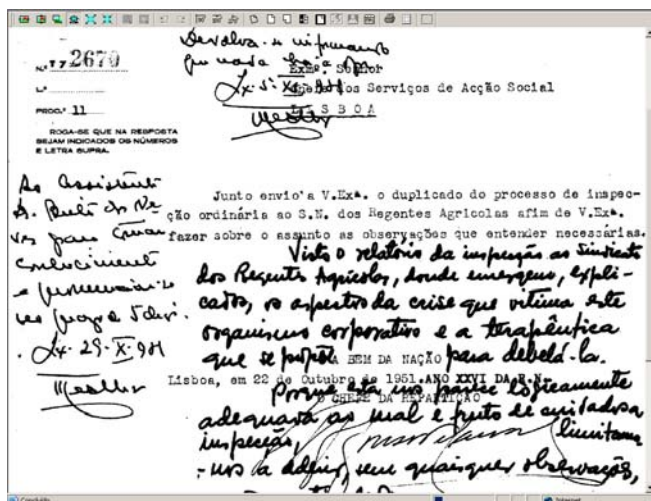 N.º T 7 2670
L.º
PROC.º 11
ROGA-SE QUE NA RESPOSTA
SEJAM INDICADOS OS NÚMEROS
E LETRA SUPRA.
Devolva-se informando
que nada
Lx. 5-XI-951
Exmº. Senhor
dos Serviços de Acção Social
L I S B O A
Ao Assistente
para tomar
conhecimento
e pronunciar-se
no prazo de 5 dias.
Lx. 29-X-951
Junto envio a V.Exª. o duplicado do processo de inspec-
ção ordinária ao S.N. dos Regentes Agricolas afim de V.Exª.
fazer sobre o assunto as observações que entender necessárias.
Visto o relatório da inspeção ao Sindicato
dos Regentes Agrícolas, donde emergem, expli-
cados, os aspectos da crise que vitima este
organismo corporativo e a terapêutica
que se propõe para debelá-la.
A BEM DA NAÇÃO
Lisboa, em 22 de Outubro de 1951. ANO XXVI DA R.N.
O CHEFE DA REPARTIÇÃO
Porque esta nos parece lògicamente
adequada ao mal e fruto de cuidadosa
inspeção, limitamo
-nos a aderir, sem quaisquer observações,
Concluído
Internet